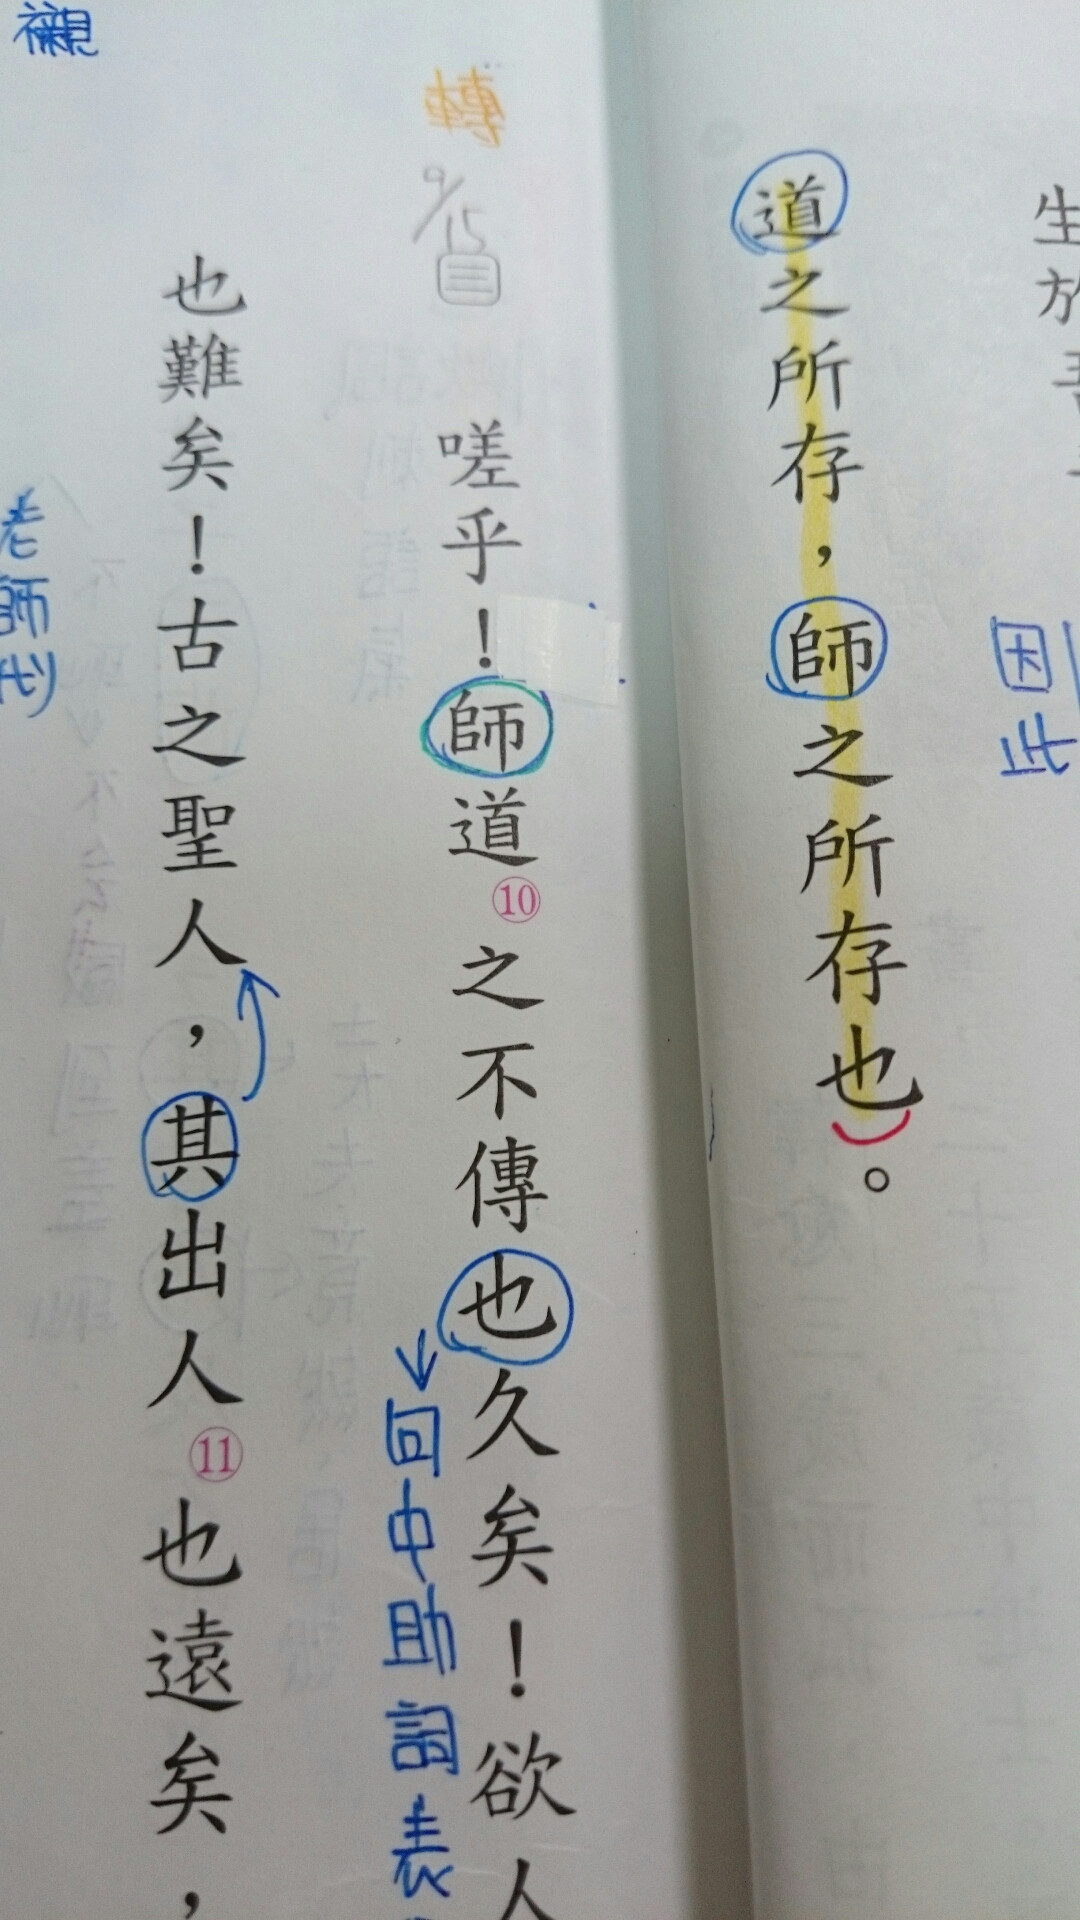 生於吾
因此
道之所存，師之所存也。
轉
9/15
嗟乎！師道⑩之不傳也久矣！欲人
句中助詞表
也難矣！古之聖人，其出人⑪也遠矣，
襯
老師代